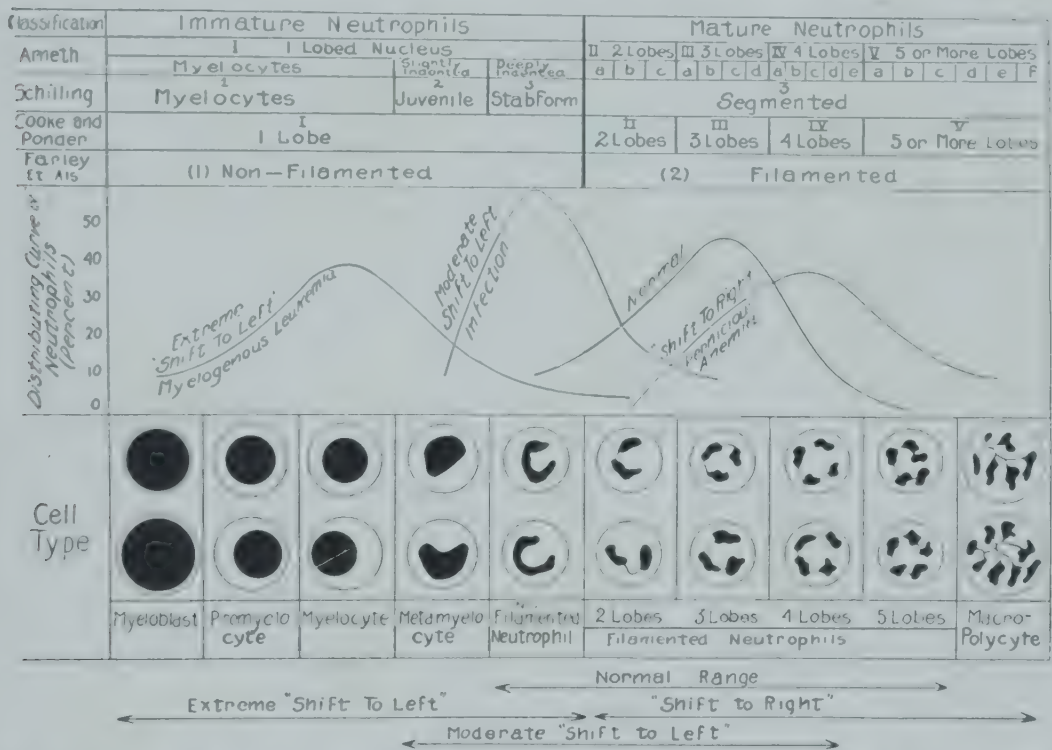 Classification
Immature Neutrophils
Mature Neutrophils
Arneth
I 1 Lobed Nucleus
II 2 Lobes
III 3 Lobes
IV 4 Lobes
V 5 or More Lobes
Myelocytes
Slightly Indented
Deeply Indented
a b c
a b c d
a b c d e
a b c d e F
Schilling
1
Myelocytes
2
Juvenile
3
Stab Form
3
Segmented
Cooke and Ponder
I
1 Lobe
II
2 Lobes
III
3 Lobes
IV
4 Lobes
V
5 or More Lobes
Farley Et Als
(1) Non-Filamented
(2) Filamented
Neutrophils
(Percent)
50
40
30
20
10
0
Extreme
"Shift To Left"
Myelogenous Leukemia
Moderate
"Shift To Left"
Infection
Normal
"Shift To Right"
Pernicious
Anemia
Cell
Type
Myeloblast
Promyelo
cyte
Myelocyte
Metamyelo
cyte
Filamented
Neutrophil
2 Lobes
3 Lobes
4 Lobes
5 Lobes
Filamented Neutrophils
Macro-
Polycyte
Normal Range
Extreme "Shift To Left"
"Shift to Right"
Moderate "Shift to Left"